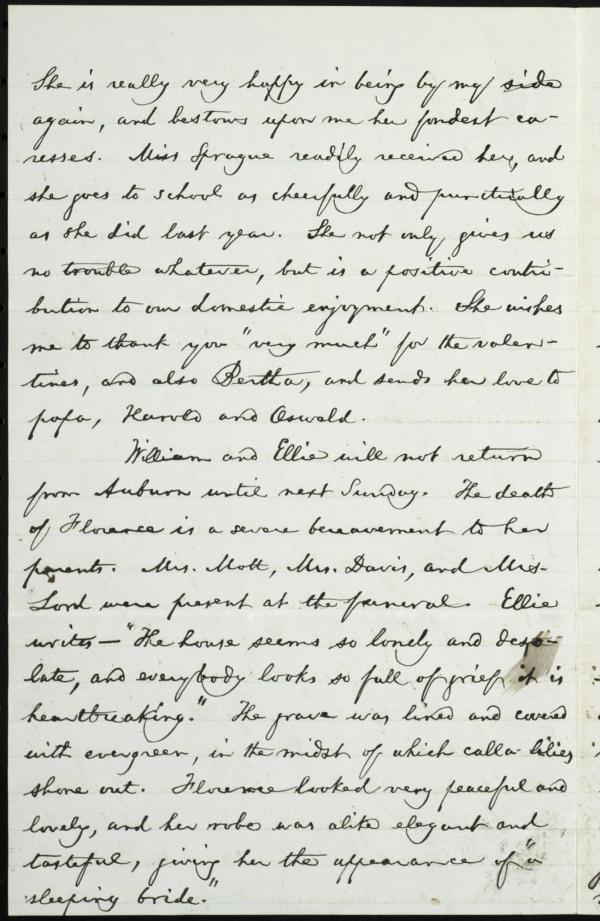 She is really very happy in being by my side
again, and bestows upon me her fondest ca-
resses. Miss Sprague readily received her, and
she goes to school as cheerfully and punctually
as she did last year. She not only gives us
no trouble whatever, but is a positive contri-
bution to our domestic enjoyment. She wishes
me to thank you "very much" for the valen-
tines, and also Bertha, and sends her love to
papa, Harold and Oswald.
William and Ellie will not return
from Auburn until next Sunday. The death
of Florence is a severe bereavement to her
parents. Mrs. Mott, Mrs. Davis, and Mrs.
Lord were present at the funeral. Ellie
writes—"The house seems so lonely and deso-
late, and everybody looks so full of grief it is
heartbreaking." The grave was lined and covered
with evergreen, in the midst of which calla lilies
shone out. Florence looked very peaceful and
lovely, and her robe was alike elegant and
tasteful, giving her the appearance of "a
sleeping bride."